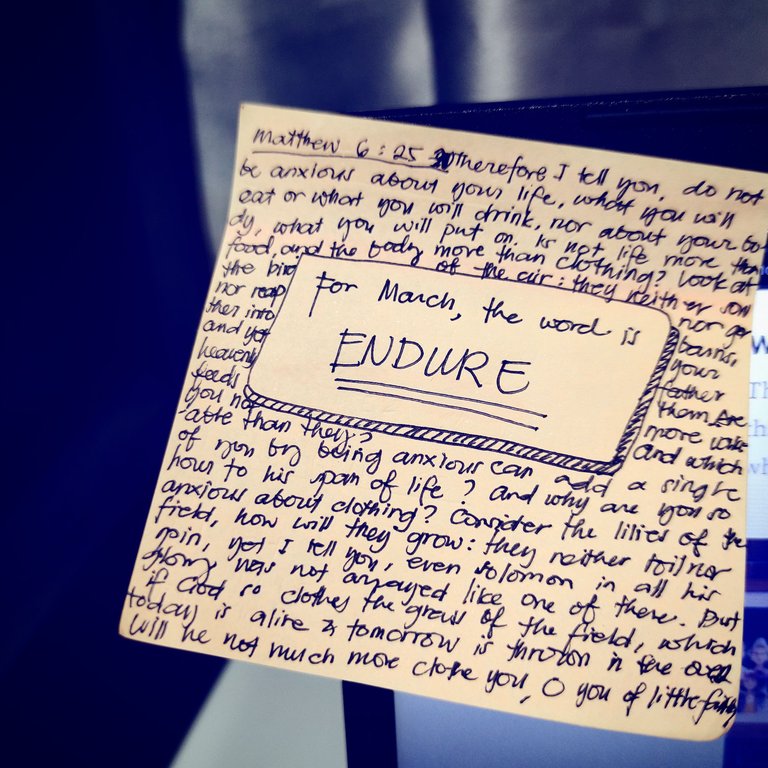 Matthew 6:25 Therefore I tell you, do not
be anxious about your life, what you will
eat or what you will drink, nor about your bo
dy, what you will put on. Is not life more than
food, and the body more than clothing? Look at
the bird of the air: they neither sow
nor reap nor ga
ther into barns,
and yet your
heavenly father
feeds them. Are
you not more valu
able than they? and which
of you by being anxious can add a single
hour to his span of life? And why are you so
anxious about clothing? Consider the lilies of the
field, how will they grow: they neither toil nor
spin, yet I tell you, even Solomon in all his
glory was not arrayed like one of there. But
if God so clothes the grass of the field, which
today is alive & tomorrow is thrown in the oven
will he not much more clothe you, O you of little faith
For March, the word is
ENDURE